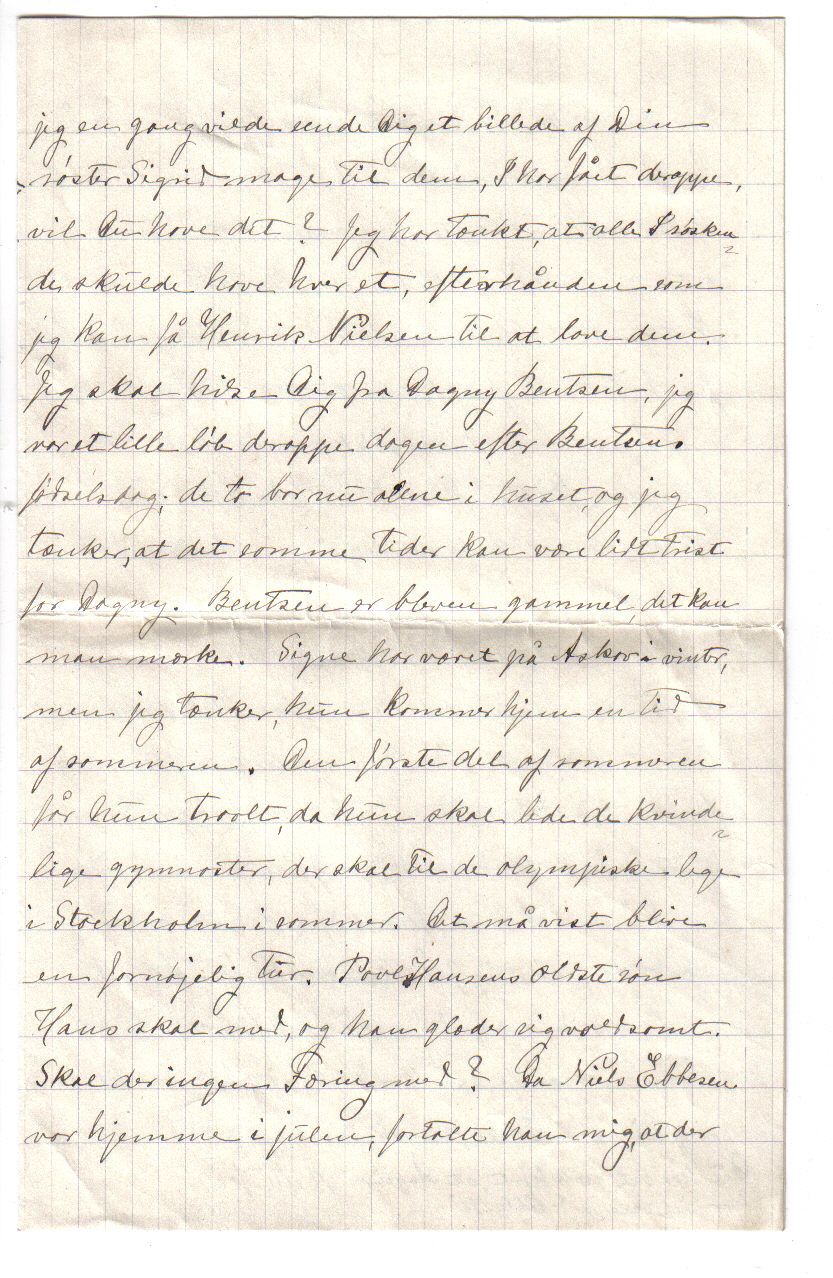 jeg en gang vilde sende Dig et billede af Din
søster Sigrid mage til dem, I har fået deroppe,
vil Du have det? Jeg har tænkt, at alle I søsken
de skulde have hver et, efterhånden som
jeg kan få Henrik Nielsen til at lave dem.
Jeg skal hilse Dig fra Dagny Bentsen, jeg
var et lille løb deroppe dagen efter Bentsens
fødselsdag; de to bor nu alene i huset, og jeg
tænker, at det somme tider kan være lidt trist
for Dagny. Bentsen er bleven gammel, det kan
man mærke. Signe har været på Askov i vinter,
men jeg tænker, hun kommer hjem en tid
af sommeren. Den første del af sommeren
får hun travlt, da hun skal lede de kvinde
lige gymnaster, der skal til de olympiske lege
i Stockholm i sommer. Det må vist blive
en fornøjelig tur. Povl Hansens ældste søn
Hans skal med, og han glæder sig voldsomt.
Skal der ingen Færing med? Da Niels Ebbesen
var hjemme i julen, fortalte han mig, at der